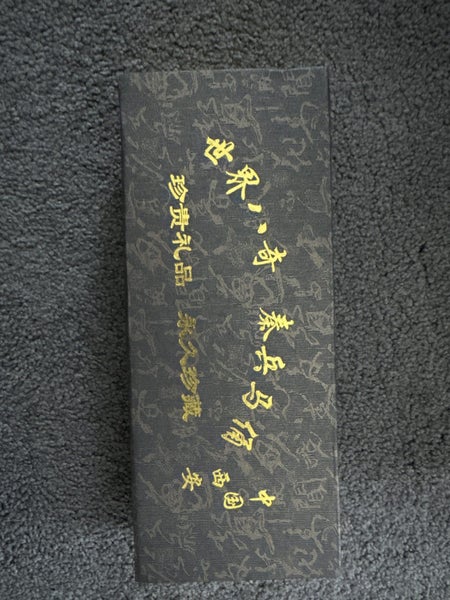 世界八奇 秦兵马俑
珍贵礼品 永久珍藏
中国
西安